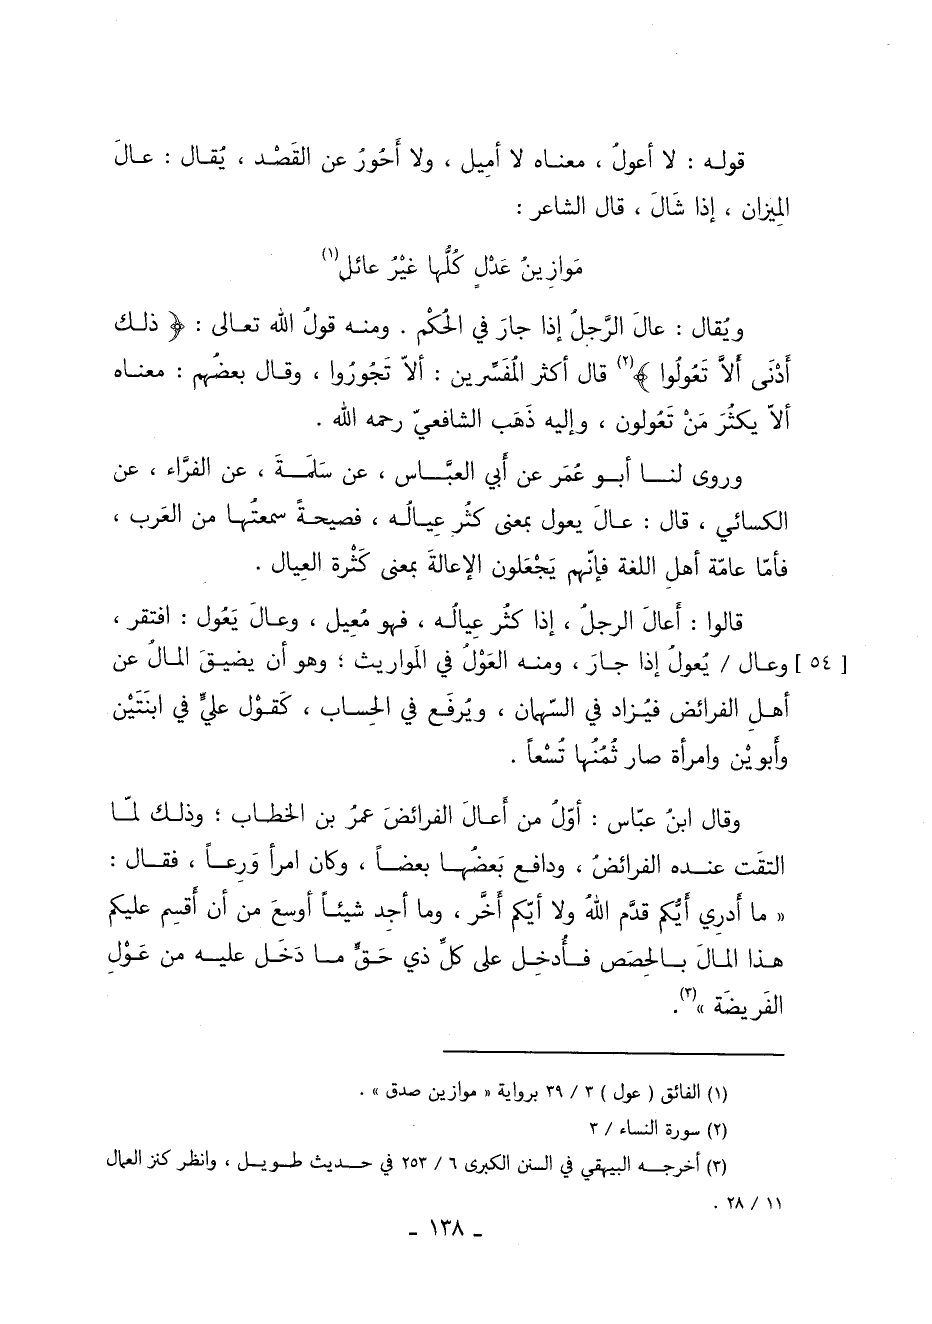 قوله : لا أعولُ ، معناه لا أميل ، ولا أَحُورُ عن القَصْد ، يُقال : عالَ
الميزان ، إذا شَالَ ، قال الشاعر :
مَوازِينُ عَدْلٍ كُلُّها غيْرُ عائل(١)
ويُقال : عالَ الرَّجلُ إذا جارَ في الحُكْم . ومنه قولُ الله تعالى : ﴿ ذلك
أَدْنَى أَلاَّ تَعُولُوا ﴾(٢) قال أكثر المُفَسِّرين : ألاّ تَجُورُوا ، وقال بعضُهم : معناه
ألاّ يكثُرَ مَنْ تَعُولون ، وإليه ذَهَب الشافعيّ رحمه الله .
وروى لنا أبو عُمَر عن أبي العبَّاس ، عن سَلَمَةَ ، عن الفرَّاء ، عن
الكسائي ، قال : عالَ يعول بمعنى كثُر عيالُه ، فصيحةً سمعتُها من العَرب ،
فأمّا عامّة أهل اللغة فإنّهم يَجْعَلون الإعالةَ بمعنى كَثْرة العِيال .
قالوا : أَعالَ الرجلُ ، إذا كثُر عِيالُه ، فهو مُعِيل ، وعالَ يَعُول : افتقر ،
[ ٥٤ ] وعال / يُعولُ إذا جارَ ، ومنه العَوْلُ في المَواريث ؛ وهو أن يضيقَ المالُ عن
أهل الفرائض فيُزاد في السِّهان ، ويُرفَع في الحِساب ، كَقوْل عليٍّ في ابنَتَيْن
وأَبويْن وامرأة صار ثُمُنُها تُسْعاً .
وقال ابنُ عبّاس : أوّلُ من أَعالَ الفرائضَ عمرُ بن الخطاب ؛ وذلك لمّا
التقَت عنده الفرائضُ ، ودافع بَعضُها بعضاً ، وكان امرأ وَرعاً ، فقال :
« ما أدري أيُّكم قدَّم اللهُ ولا أيّكم أخَّر ، وما أجد شيئاً أوسعَ من أن أَقسِم عليكم
هذا المالَ بالحِصَص فأُدخل على كلِّ ذي حَقٍّ ما دَخَل عليه من عَوْل
الفَريضَة »(٣).
(١) الفائق ( عول ) ٣ / ٣٩ برواية « موازين صدق » .
(٢) سورة النساء / ٣
(٣) أخرجه البيهقي في السنن الكبرى ٦ / ٢٥٣ في حديث طويل ، وانظر كنز العمال
١١ / ٢٨ .
- ١٣٨ -